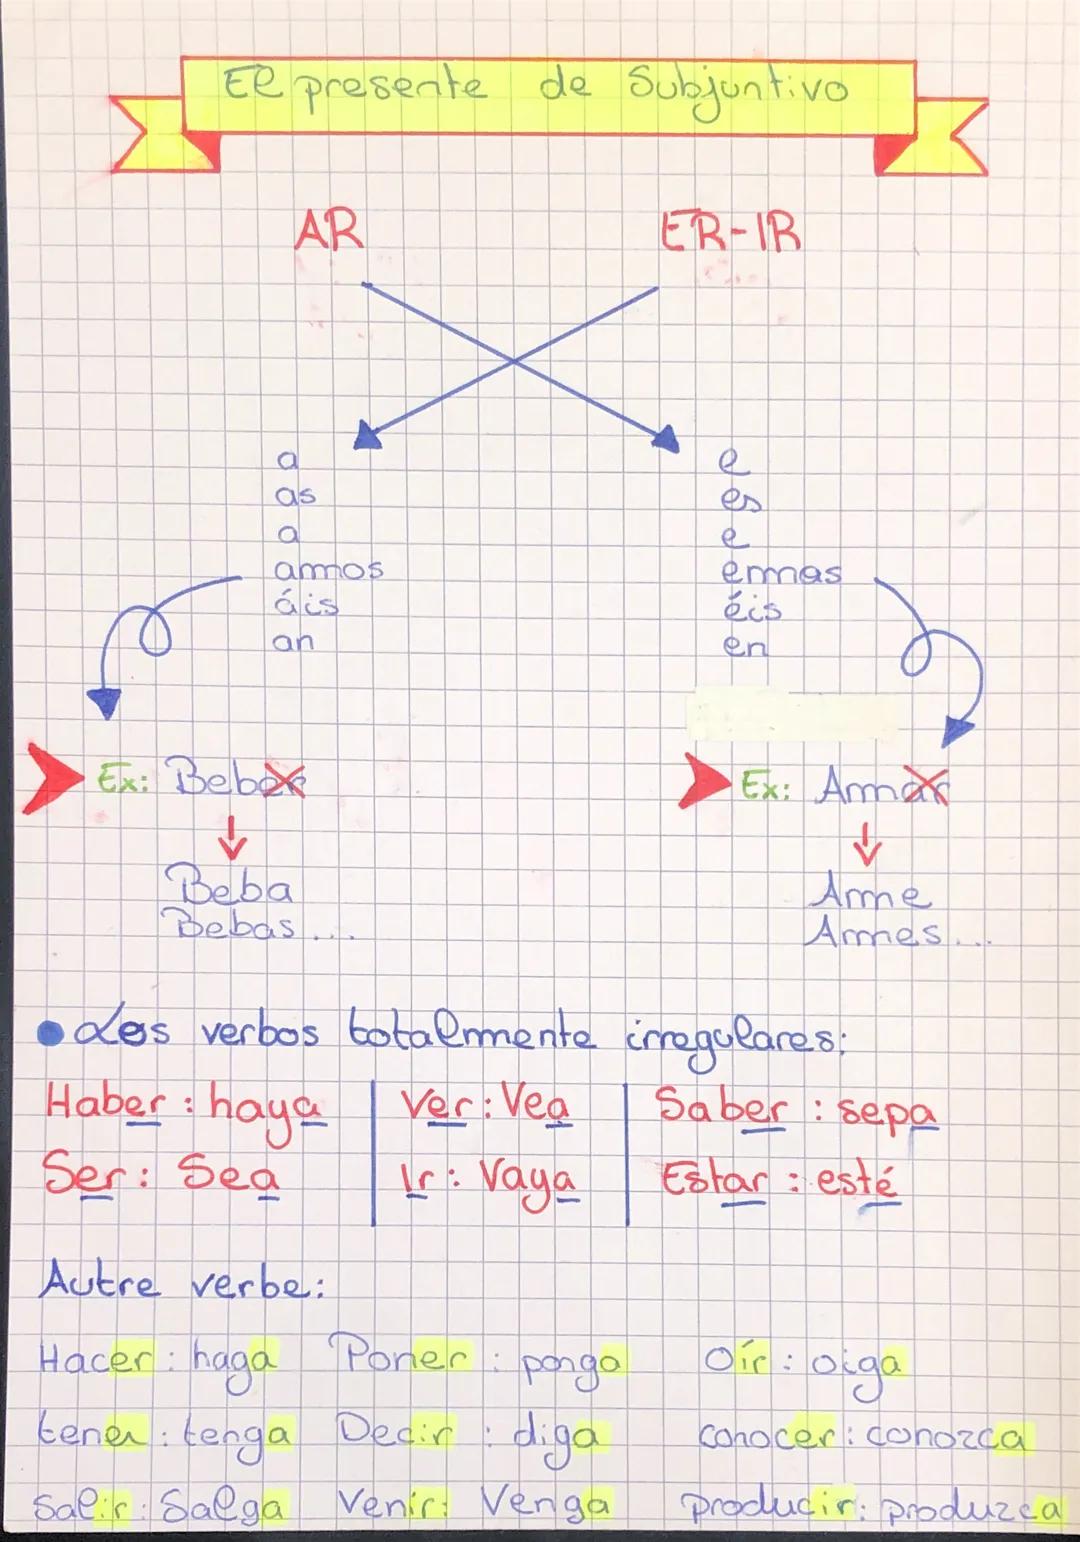 El presente de Subjuntivo
AR ER-IR
a e
as es
a e
amos emas
áis éis
an en
Ex: Beber Ex: Amar
Beba Ame
Bebas... Ames...
Los verbos totalmente irregulares:
Haber : haya Ver : Vea Saber : sepa
Ser : Sea Ir : Vaya Estar : esté
Autre verbe :
Hacer : haga Poner : ponga Oír : oiga
tener : tenga Decir : diga conocer : conozca
Salir : Salga Venir : Venga producir : produzca